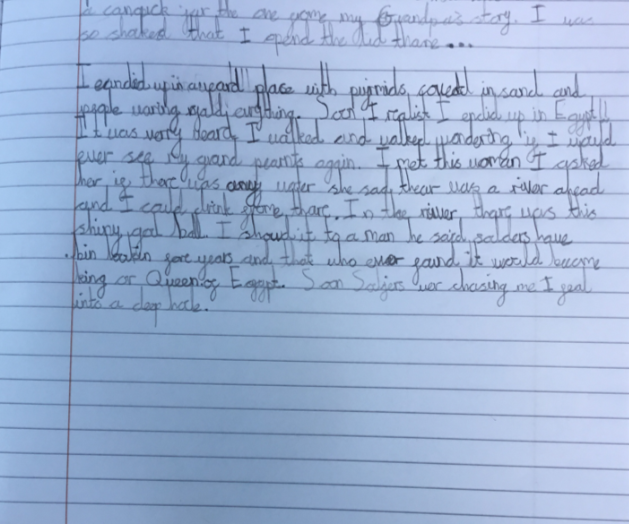 the one my Grandpa's story. I was
so shaked that I opend the did thare...
I eanded up in a weard place with pigrids, coverd in sand and
people waring raldi anything. Soon I realist I endid up in Egypt!
It was very heard, I walked and walked wondering if I would
ever see my grand pearnts again. I met this woman I asked
her if thare was any water she sad, thear was a river ahead
and I could drink frome thare. In the river, thare was this
shiny gol ball. I showd it to a man he said, solders have
bin for years and that who ever found it would become
king or Queen of Egypt. Soon Soljirs wer chasing me I
into a deep hole.